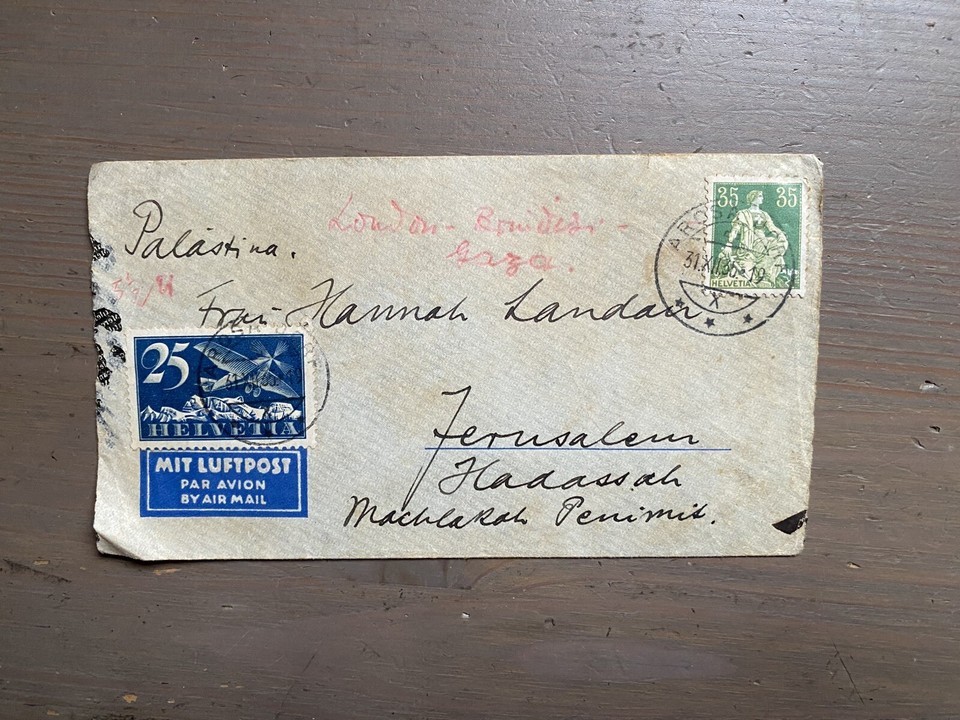 Palästina.
London - Brindisi -
Gaza.
35 35
HELVETIA
AROSA
31.XII.36-19
Frau Hannah Landau
25
HELVETIA
MIT LUFTPOST
PAR AVION
BY AIR MAIL
Jerusalem
Hadassah
Machlakah Penimit.